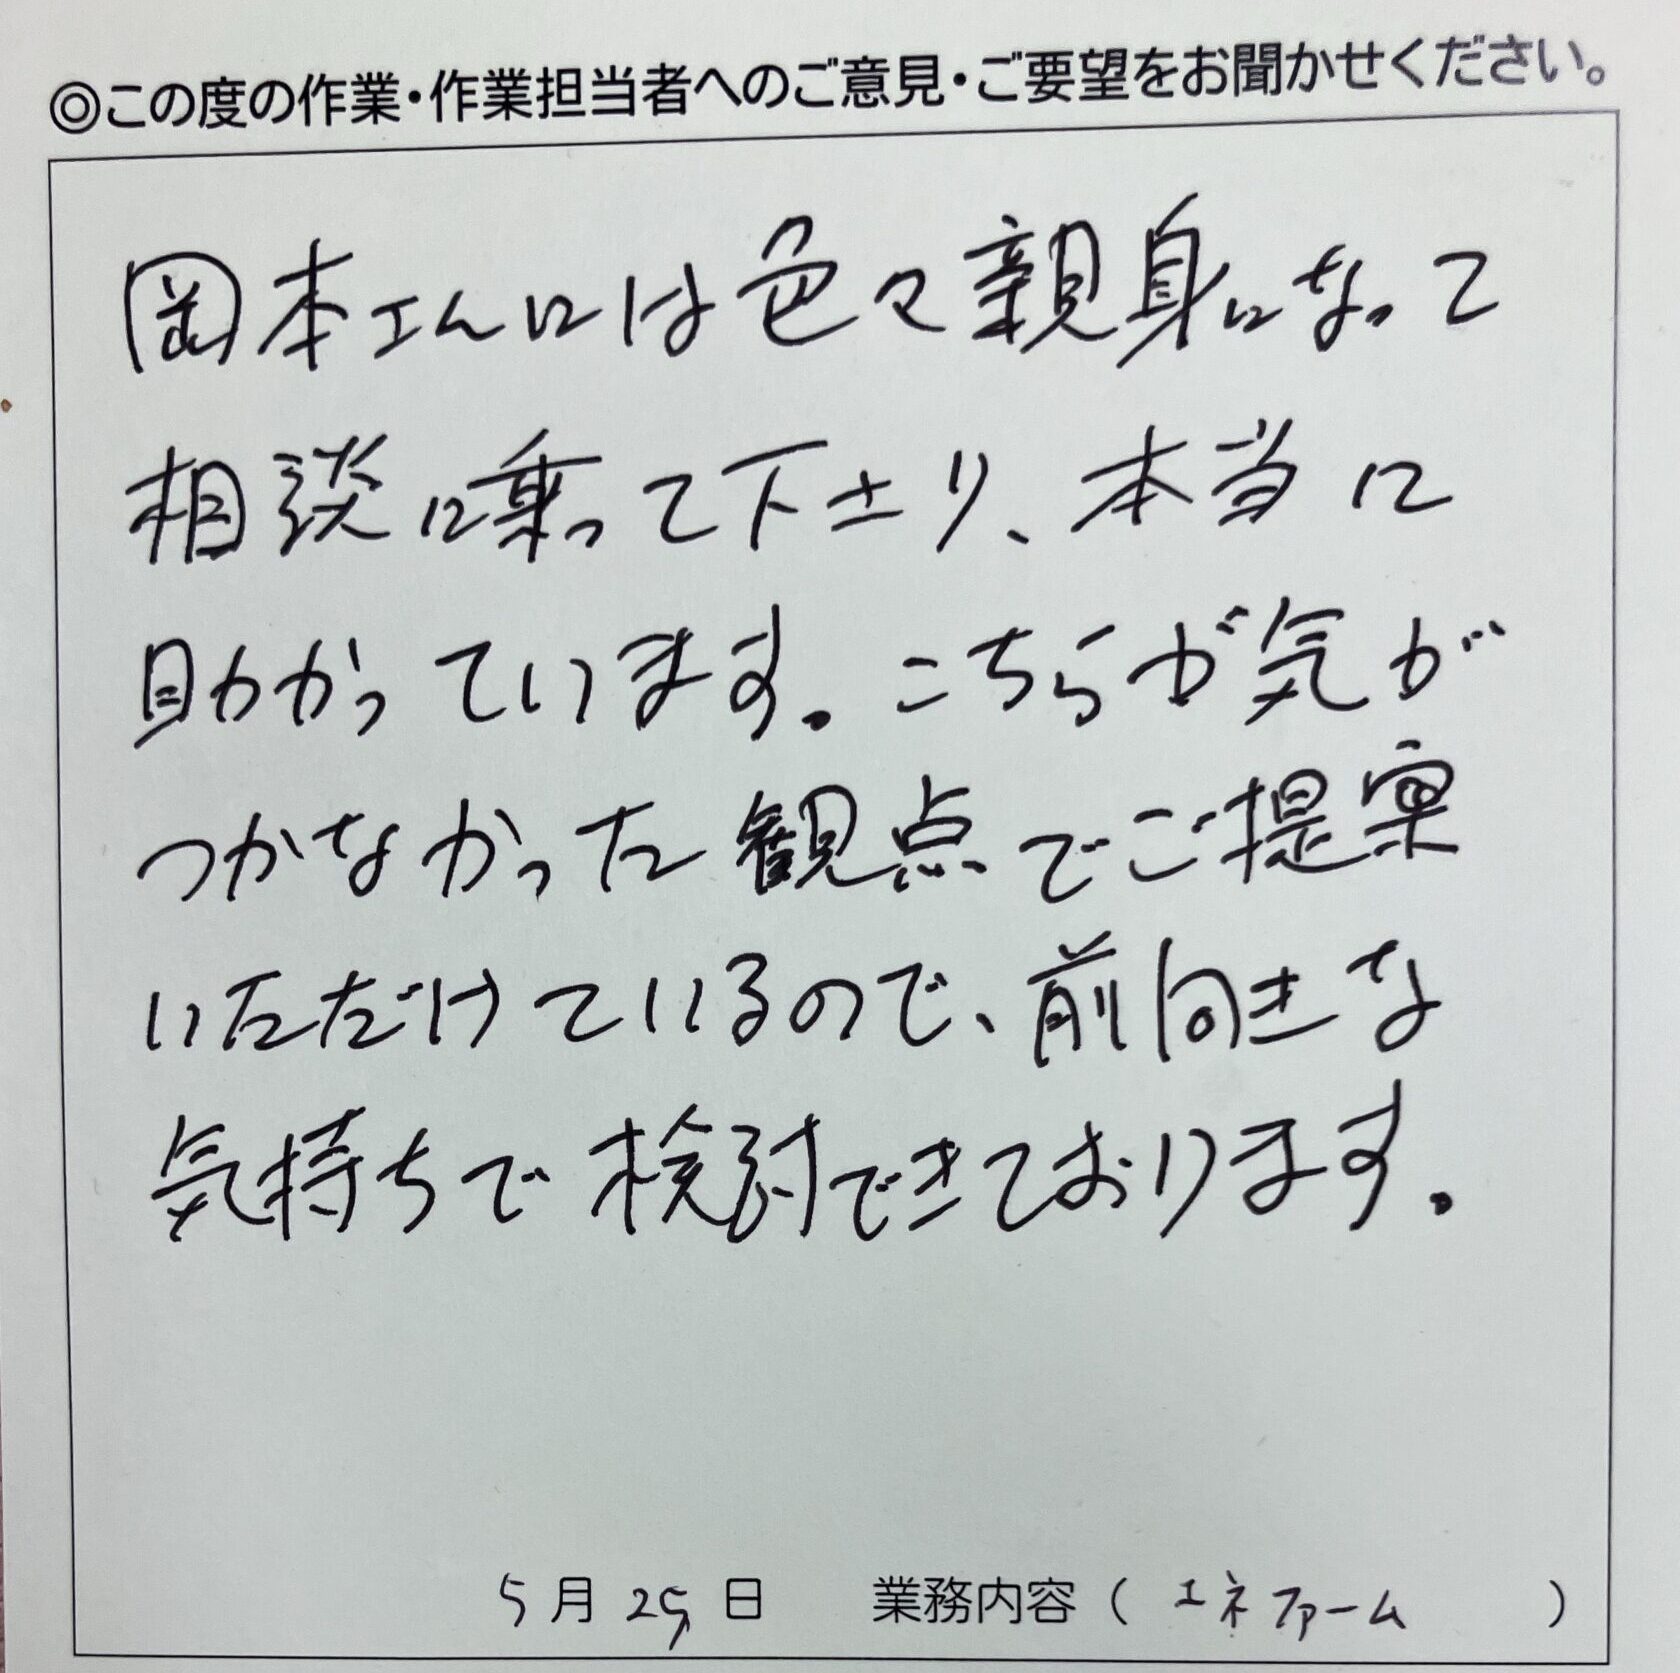 ◎この度の作業・作業担当者へのご意見・ご要望をお聞かせください。
岡本さんには色々親身になって
相談に乗って下さり、本当に
助かっています。こちらが気が
つかなかった観点でご提案
いただけているので、前向きな
気持ちで検討できております。
5月25日 業務内容（エネファーム）